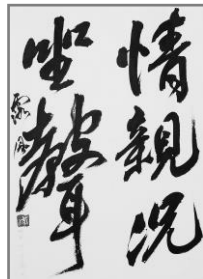 情親況
坐聲